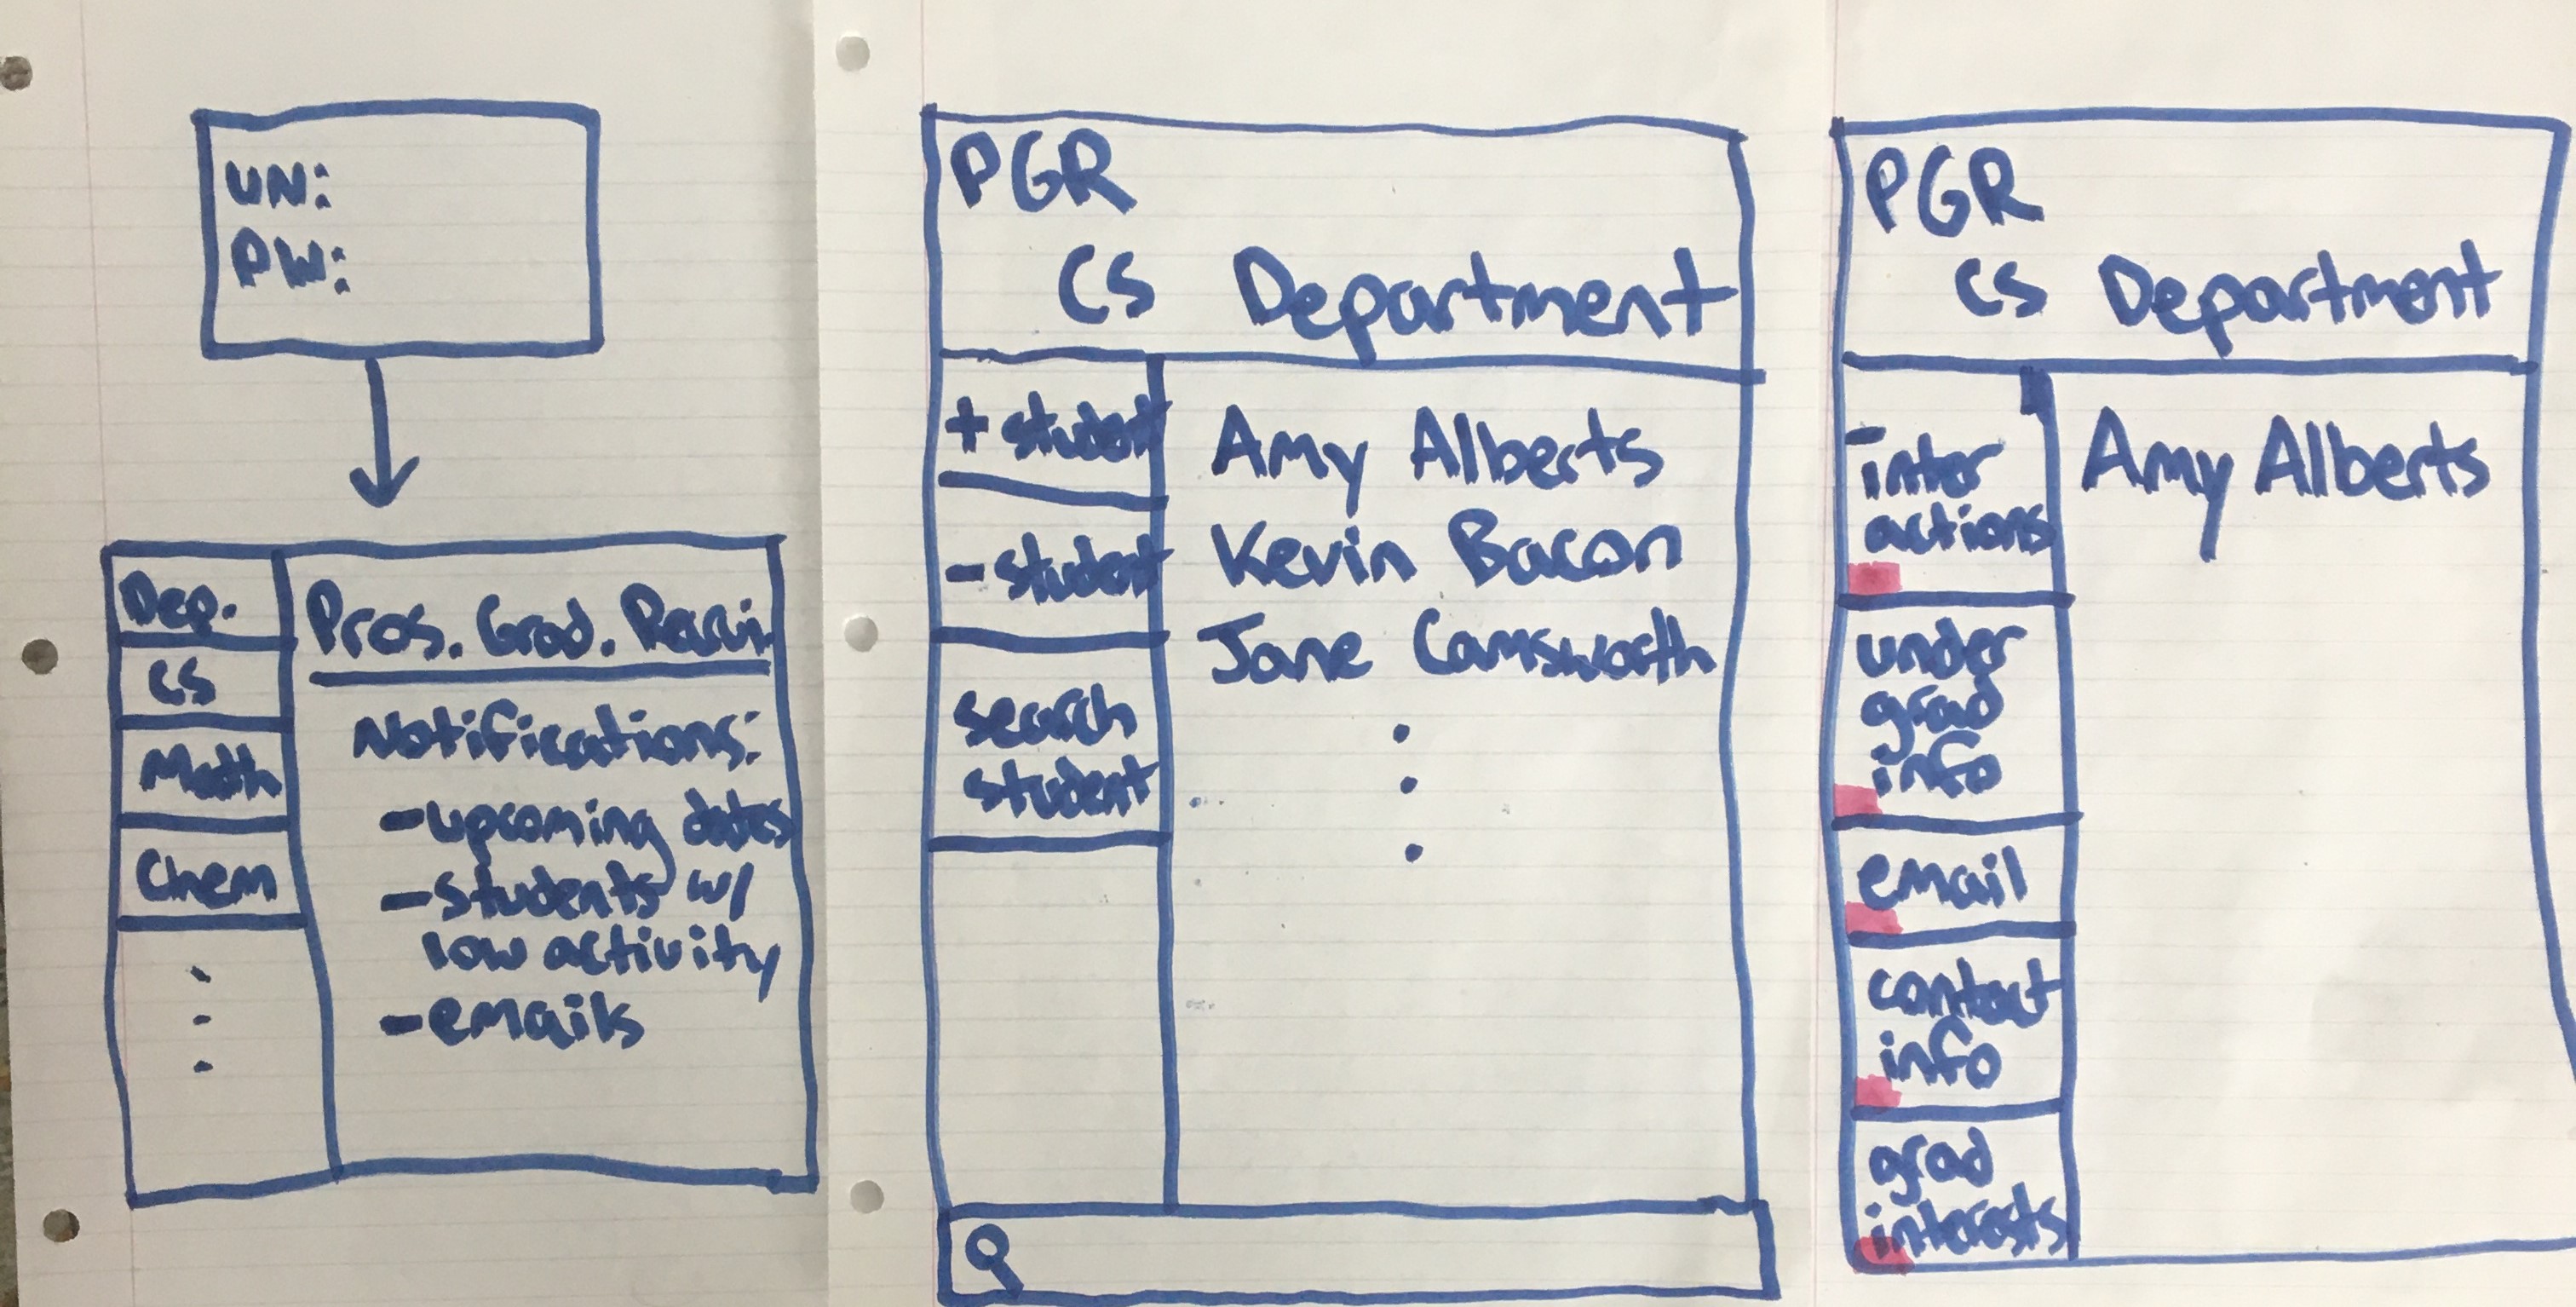 UN:
PW:
Dep.
CS
Math
Chem
Pros. Grad. Recrui.
Notifications:
- upcoming dates
- students w/
low activity
- emails
PGR
CS Department
+ student
- student
search
student
Amy Alberts
Kevin Bacon
Jane Camsworth
PGR
CS Department
- inter
actions
under
grad
info
email
contact
info
grad
interests
Amy Alberts